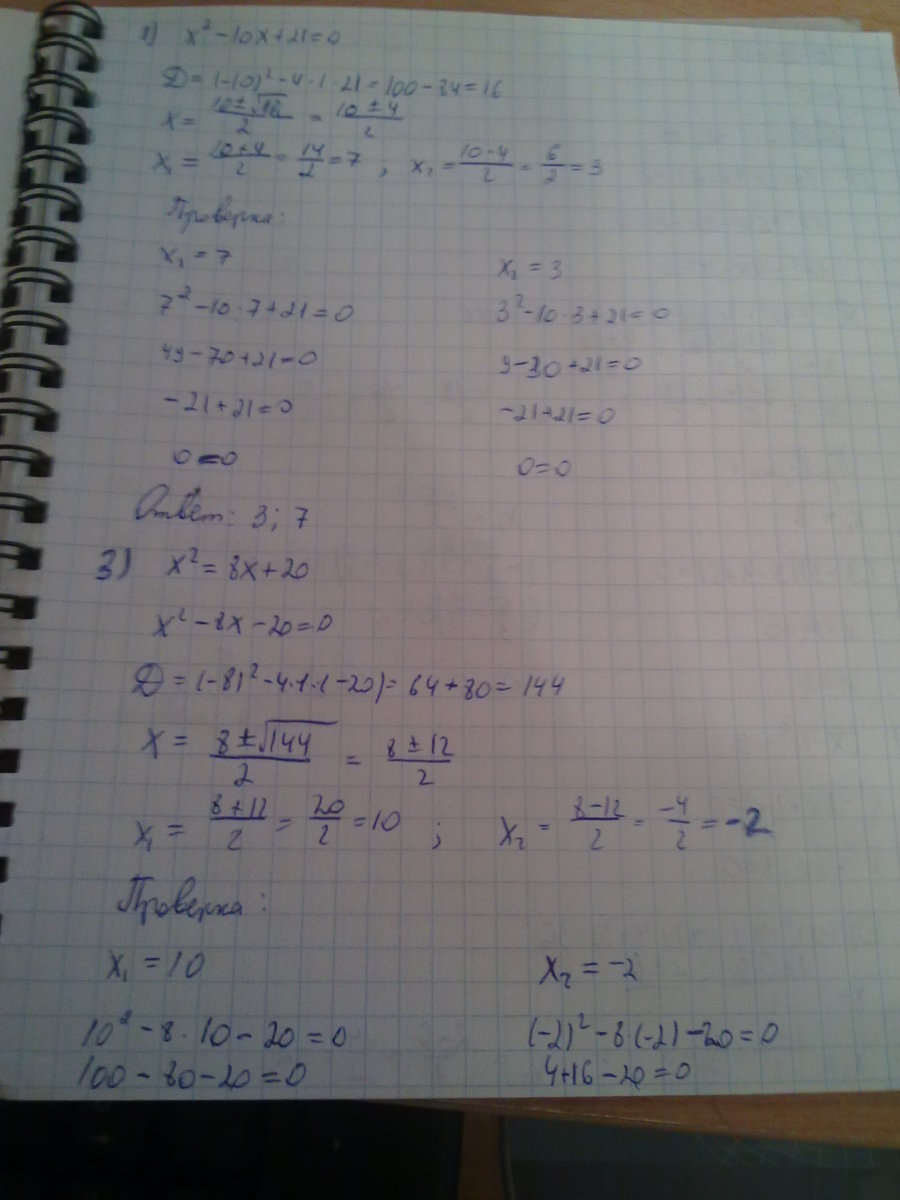 1) x² - 10x + 21 = 0
D = (-10)² - 4·1·21 = 100 - 84 = 16
x = (10 ± √16)/2 = (10 ± 4)/2
x₁ = (10+4)/2 = 14/2 = 7 ; x₂ = (10-4)/2 = 6/2 = 3
Проверка:
x₁ = 7
x₂ = 3
7² - 10·7 + 21 = 0
3² - 10·3 + 21 = 0
49 - 70 + 21 = 0
9 - 30 + 21 = 0
-21 + 21 = 0
-21 + 21 = 0
0 = 0
0 = 0
Ответ: 3; 7
3) x² = 8x + 20
x² - 8x - 20 = 0
D = (-8)² - 4·1·(-20) = 64 + 80 = 144
x = (8 ± √144)/2 = (8 ± 12)/2
x₁ = (8+12)/2 = 20/2 = 10 ; x₂ = (8-12)/2 = -4/2 = -2
Проверка:
x₁ = 10
x₂ = -2
10² - 8·10 - 20 = 0
(-2)² - 8·(-2) - 20 = 0
100 - 80 - 20 = 0
4+16 - 20 = 0